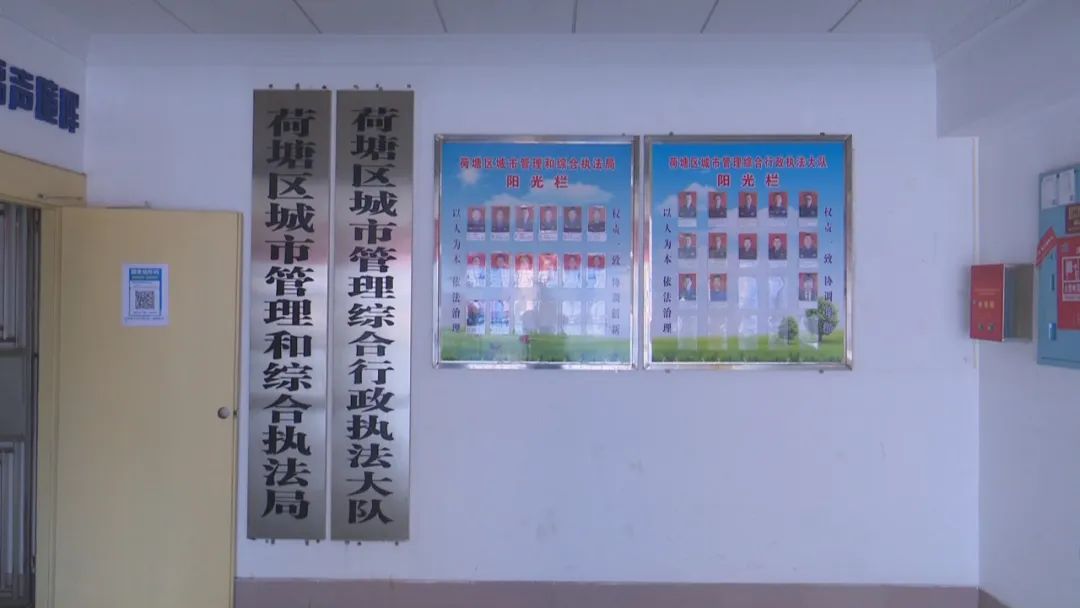 荷塘区城市管理和综合执法局
荷塘区城市管理综合行政执法大队
荷塘区城市管理和综合执法局
阳光栏
以人为本 依法治理
权责一致 协调创新
荷塘区城市管理综合行政执法大队
阳光栏
以人为本 依法治理
权责一致 协调